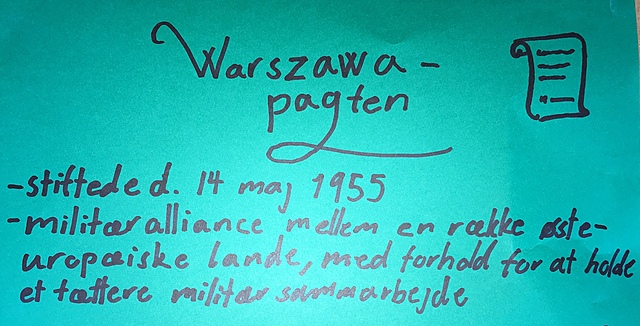 Warszawa-
pagten
-stiftede d. 14 maj 1955
-militær alliance mellem en række øste-
uropæiske lande, med forhold for at holde
et tættere militær sammarbejde